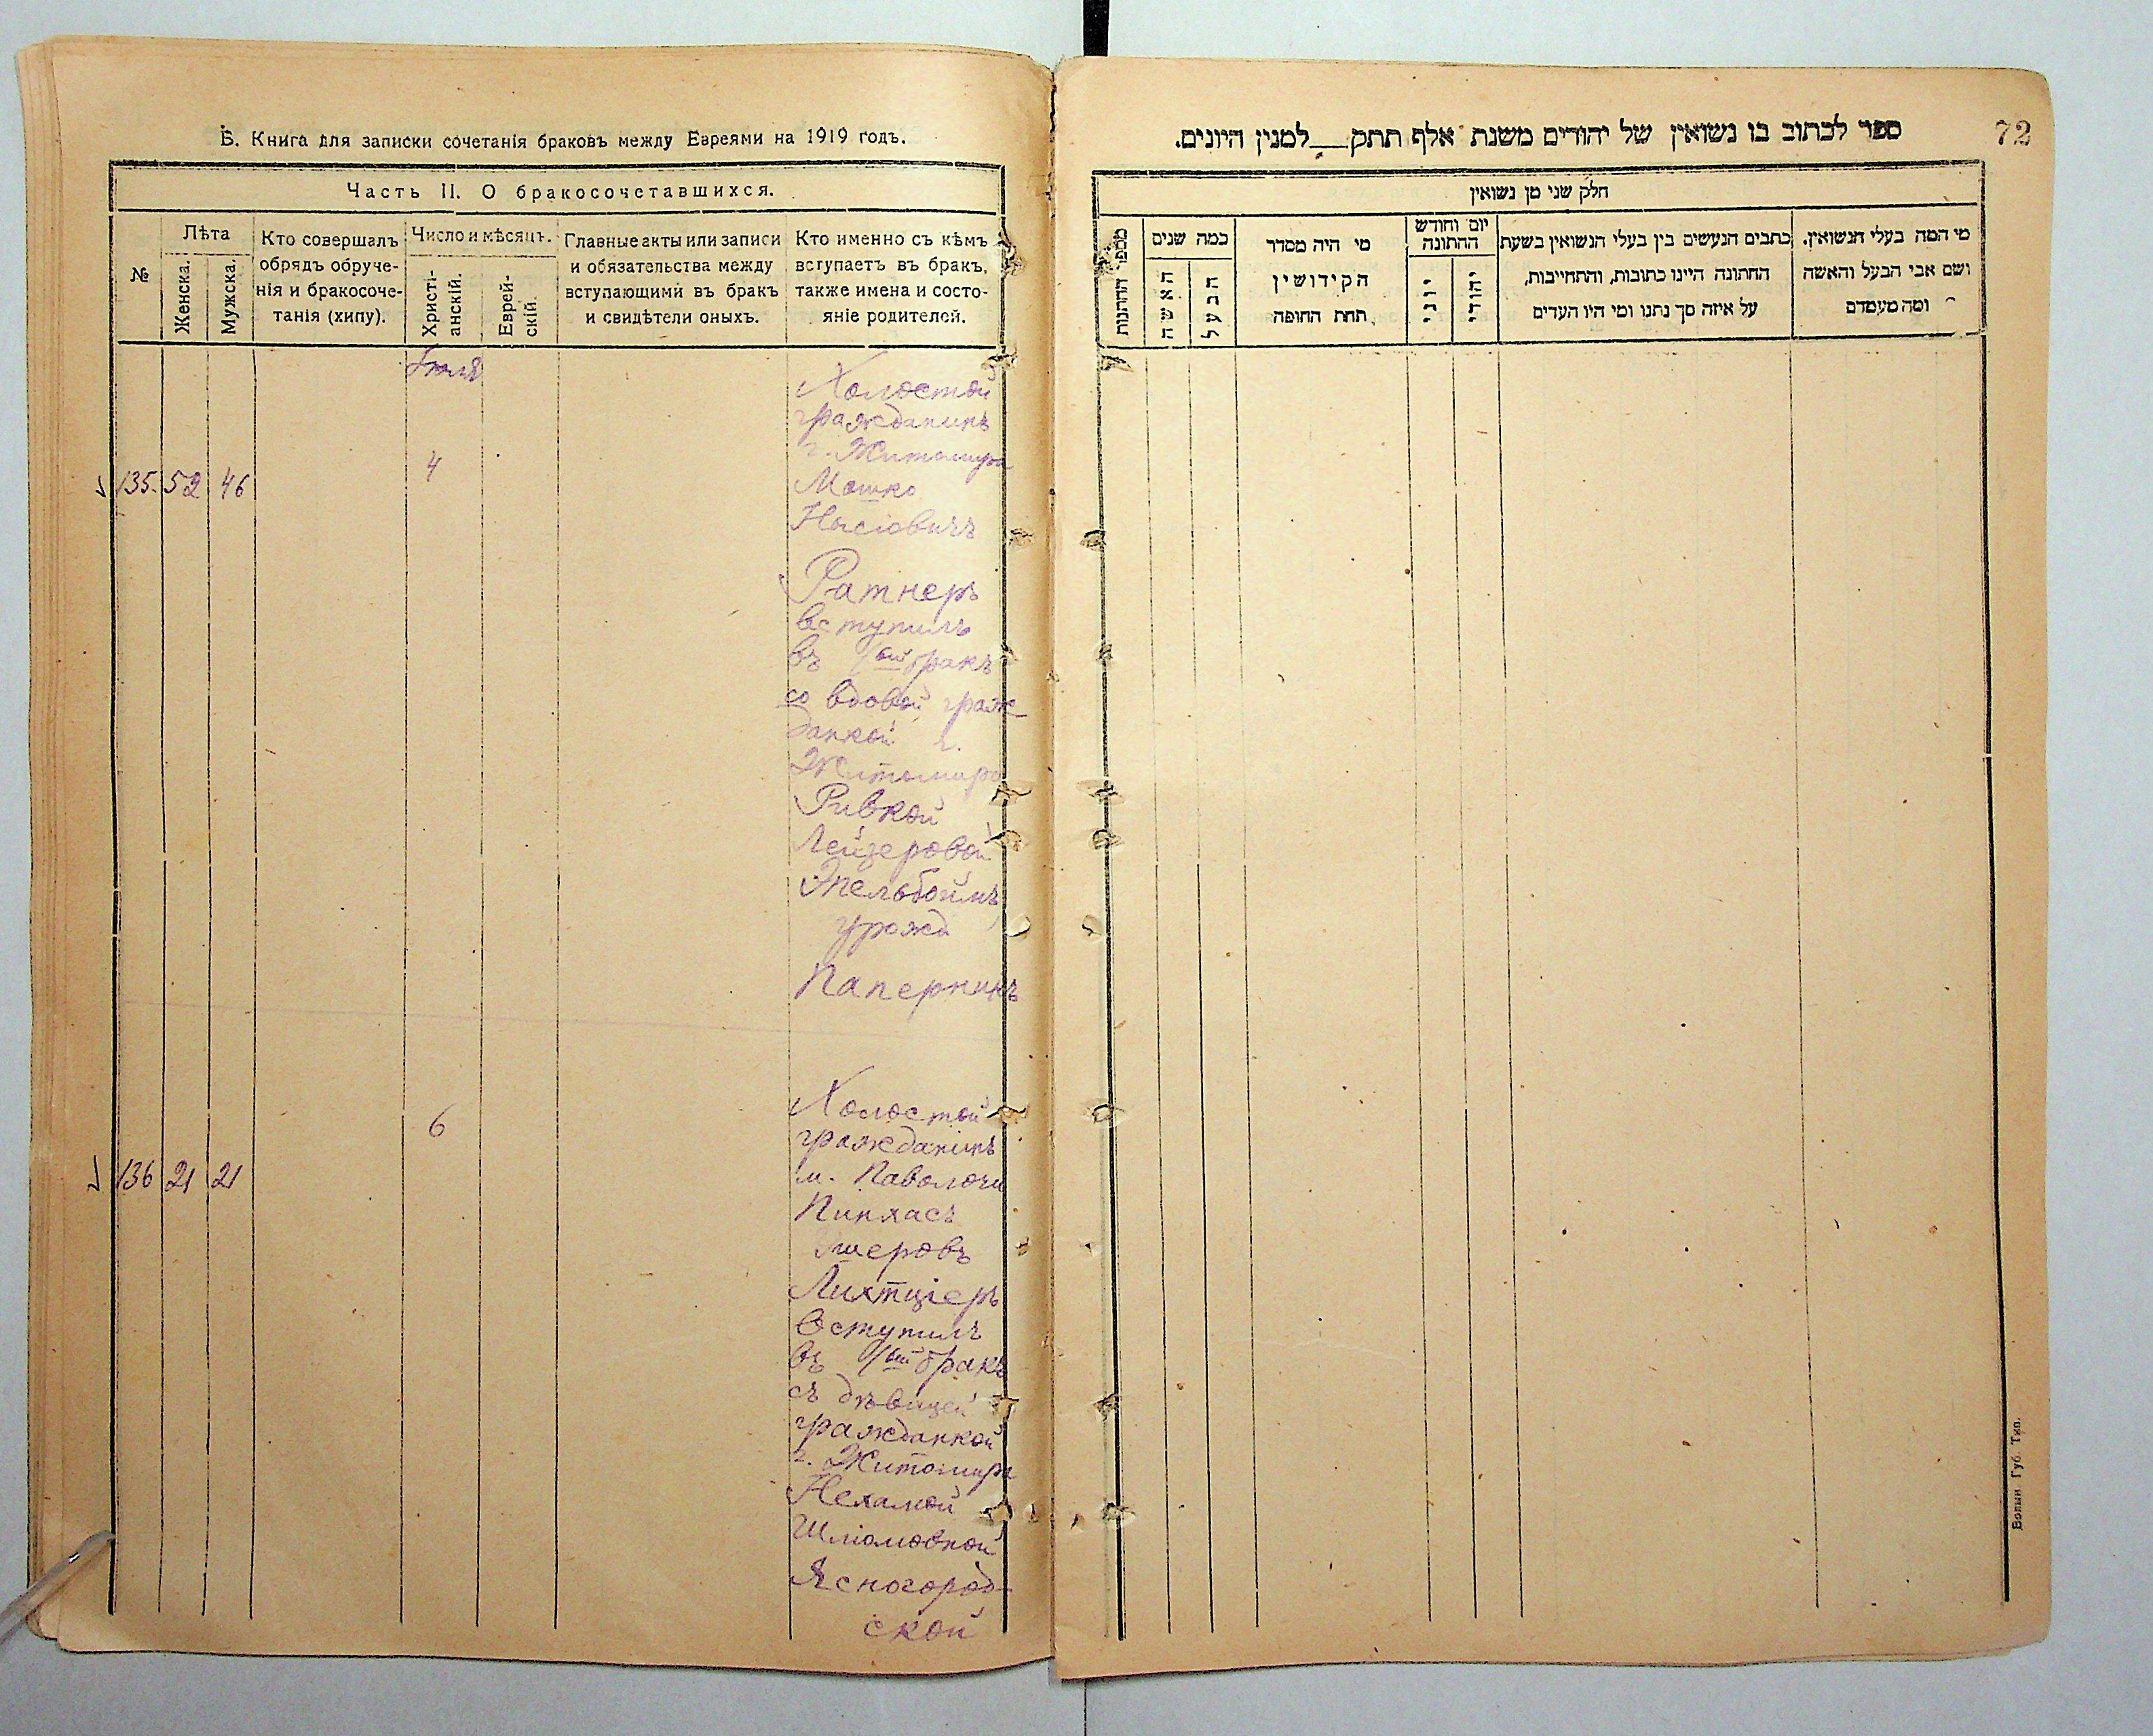 Б. Книга для записки сочетанія браковъ между Евреями на 1919 годъ.
Часть II. О бракосочетавшихся.
№
Лѣта
Женска.
Мужска.
Кто совершалъ
обрядъ обруче-
нія и бракосоче-
танія (хипу).
Число и мѣсяцъ.
Христі-
анскій.
Еврей-
скій.
Главные акты или записи
и обязательства между
вступающими въ бракъ
и свидѣтели оныхъ.
Кто именно съ кѣмъ
вступаетъ въ бракъ,
также имена и состо-
яніе родителей.
Іюля
135. 52 46
4
Холостой
гражданинъ
г. Житомира
Мошко
Нысіовичъ
Ратнеръ
вступилъ
въ 1ый бракъ
со вдовой граж
данкой г.
Житомира
Ривкой
Лейзеровой
Эпельбоймъ
урожд
Папернинъ
136 21 21
6
Холостой
гражданинъ
м. Паволочи
Пинхасъ
Ошеровъ
Лихтціеръ
вступилъ
въ 1ый бракъ
съ дѣвицей
гражданкой
г. Житомира
Нехамой
Шліомовной
Ясногород-
ской
72
ספר לכתוב בו נשואין של יהודים משנת אלף תתק__למנין היונים.
חלק שני מן נשואין
מספר החתנות
כמה שנים
האשה
הבעל
מי היה מסדר
הקידושין
תחת החופה
יום וחודש
החתונה
יוני
יהודי
כתבים הנעשים בין בעלי הנשואין בשעת
החתונה היינו כתובות, והתחייבות,
על איזה סך נתנו ומי היו העדים
מי המה בעלי הנשואין.
ושם אבי הבעל והאשה
ומה מעמדם
Волын. Губ. Тип.